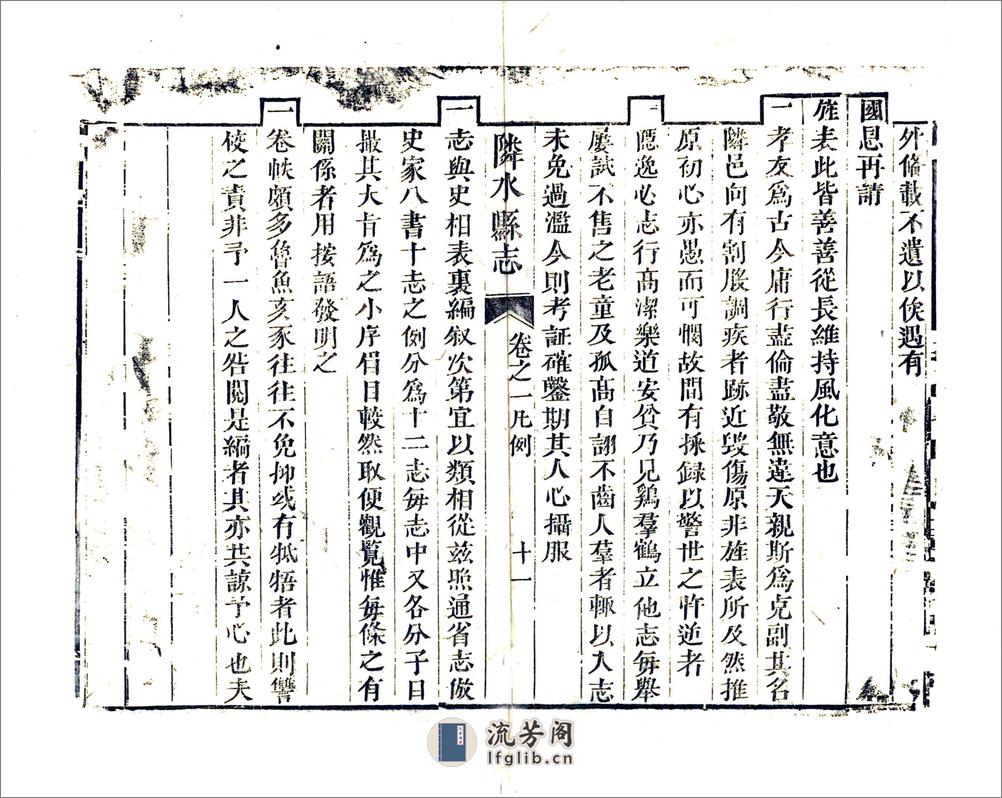 外備載不遺以俟遇有
國恩再請
旌表此皆善善從長維持風化意也
一孝友為古今庸行盡倫盡敬無違天親斯為克副其名
隣邑向有割股調疾者跡近毀傷原非旌表所及然推
原初心亦愚而可憫故間有採録以警世之忤逆者
一隱逸必志行髙潔樂道安貧乃見鷄羣鶴立他志每舉
屢試不售之老童及孤髙自詡不齒人羣者輒以入志
未免過濫今則考証確鑿期其人心攝服
隣水縣志
卷之一凡例
十一
一志與史相表裏編叙次第宜以類相從兹照通省志倣
史家八書十志之例分為十二志每志中又各分子目
撮其大旨為之小序眉目較然取便觀覧惟每條之有
關係者用按語發明之
一卷帙頗多魯魚亥豕往往不免抑或有牴牾者此則讐
校之責非予一人之咎閱是編者其亦共諒予心也夫
流芳阁
lfglib.cn